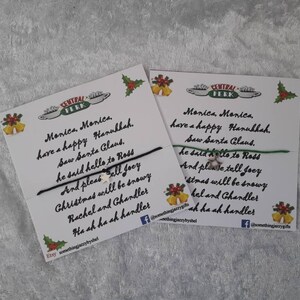 CENTRAL
PERK
Monica, Monica,
have a happy Hannukkah,
Saw Santa Claus,
he said hello to Ross
And please tell Joey
Christmas will be snowy
Rachel and Chandler
Ha ah ha ah handler
Etsy
CENTRAL
PERK
Monica, Monica,
have a happy Hannukkah,
Saw Santa Claus,
he said hello to Ross
And please tell Joey
Christmas will be snowy
Rachel and Chandler
Ha ah ha ah handler